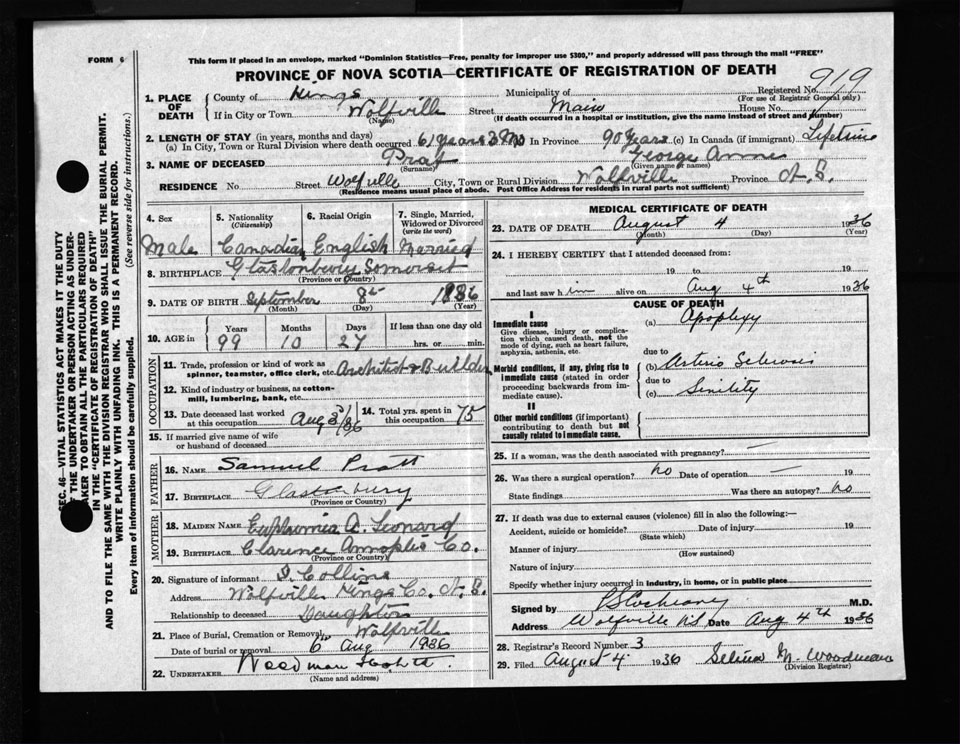 FORM 6
This form if placed in an envelope, marked "Dominion Statistics—Free, penalty for improper use $300," and properly addressed will pass through the mail "FREE"
PROVINCE OF NOVA SCOTIA—CERTIFICATE OF REGISTRATION OF DEATH
919
1. PLACE OF DEATH
County of Kings Municipality of Registered No.
(For use of Registrar General only)
If in City or Town Wolfville Street Main House No.
(Name) (If death occurred in a hospital or institution, give the name instead of street and number)
2. LENGTH OF STAY (in years, months and days)
(a) In City, Town or Rural Division where death occurred 61 years 3 Mo In Province 90 Years (c) In Canada (if immigrant) Lifetime
3. NAME OF DECEASED Prat George Anne
(Surname) (Given name or names)
RESIDENCE No. Street Wolfville City, Town or Rural Division Wolfville Province N.S.
(Residence means usual place of abode. Post Office Address for residents in rural parts not sufficient)
SEC. 46—VITAL STATISTICS ACT MAKES IT THE DUTY
THE UNDERTAKER OR PERSON ACTING AS UNDER-
TAKER TO OBTAIN ALL THE PARTICULARS REQUIRED
IN THE "CERTIFICATE OF REGISTRATION OF DEATH"
AND TO FILE THE SAME WITH THE DIVISION REGISTRAR WHO SHALL ISSUE THE BURIAL PERMIT.
WRITE PLAINLY WITH UNFADING INK. THIS IS A PERMANENT RECORD.
Every item of information should be carefully supplied. (See reverse side for instructions.)
4. Sex 5. Nationality (Citizenship) 6. Racial Origin 7. Single, Married, Widowed or Divorced (write the word)
Male Canadian English Married
8. BIRTHPLACE Glastonbury Somerset
(Province or Country)
9. DATE OF BIRTH September 8th 1836
(Month) (Day) (Year)
10. AGE in Years Months Days If less than one day old
99 10 27 hrs. or min.
OCCUPATION
11. Trade, profession or kind of work as spinner, teamster, office clerk, etc. Architect & Builder
12. Kind of industry or business, as cotton-mill, lumbering, bank, etc.
13. Date deceased last worked at this occupation Aug 3/36 14. Total yrs. spent in this occupation 75
15. If married give name of wife or husband of deceased
FATHER
16. NAME Samuel Pratt
17. BIRTHPLACE Glastonbury
(Province or Country)
MOTHER
18. MAIDEN NAME Euphemia A. Leonard
19. BIRTHPLACE Clarence Annoplis Co.
(Province or Country)
20. Signature of informant Collins
Address Wolfville Kings Co. N.S.
Relationship to deceased Daughter
21. Place of Burial, Cremation or Removal Wolfville
Date of burial or removal 6 Aug 1936
22. UNDERTAKER Woodman
(Name and address)
MEDICAL CERTIFICATE OF DEATH
23. DATE OF DEATH August 4 1936
(Month) (Day) (Year)
24. I HEREBY CERTIFY that I attended deceased from:
19 to 19
and last saw him alive on Aug 4th 1936
CAUSE OF DEATH
I
Immediate cause (a) Apoplexy
Give disease, injury or complication which caused death, not the mode of dying, such as heart failure, asphyxia, asthenia, etc.
due to
Morbid conditions, if any, giving rise to immediate cause (stated in order proceeding backwards from immediate cause).
(b) Arterio Sclerosis
due to
(c) Senility
II
Other morbid conditions (if important) contributing to death but not causally related to immediate cause.
25. If a woman, was the death associated with pregnancy? —
26. Was there a surgical operation? no Date of operation — 19
State findings Was there an autopsy? no
27. If death was due to external causes (violence) fill in also the following:—
Accident, suicide or homicide? Date of injury 19
(State which)
Manner of injury
(How sustained)
Nature of injury
Specify whether injury occurred in industry, in home, or in public place
Signed by Cochrane M.D.
Address Wolfville NS Date Aug 4th 1936
28. Registrar's Record Number 3
29. Filed August 4 1936 Selina N. Woodman
(Division Registrar)